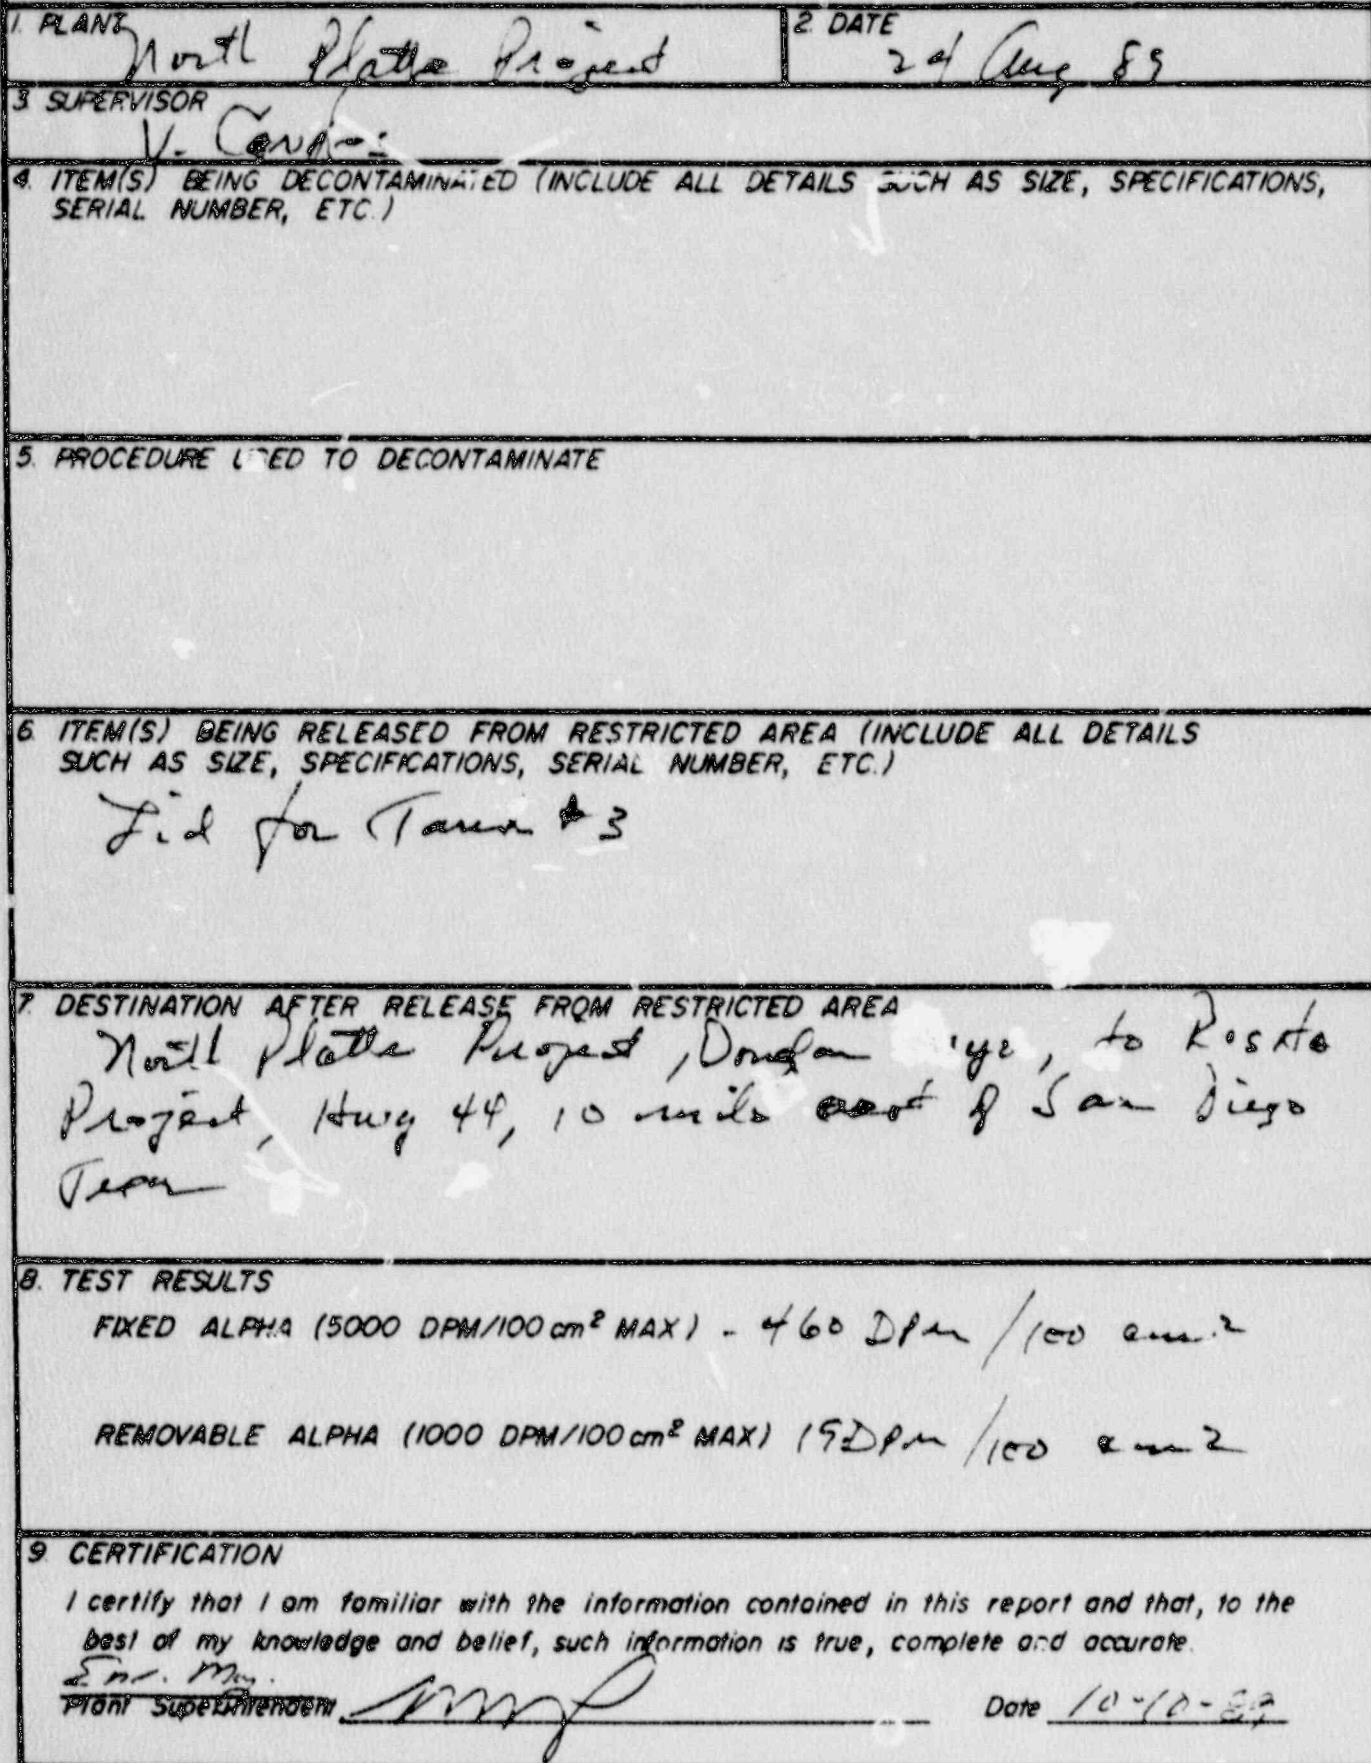 1. PLANT
North Platte Project
2. DATE
24 Aug 89
3. SUPERVISOR
V.
4. ITEM(S) BEING DECONTAMINATED (INCLUDE ALL DETAILS SUCH AS SIZE, SPECIFICATIONS,
SERIAL NUMBER, ETC.)
5. PROCEDURE USED TO DECONTAMINATE
6. ITEM(S) BEING RELEASED FROM RESTRICTED AREA (INCLUDE ALL DETAILS
SUCH AS SIZE, SPECIFICATIONS, SERIAL NUMBER, ETC.)
Lid for #3
7. DESTINATION AFTER RELEASE FROM RESTRICTED AREA
North Platte Project, to Rosita
Project, Hwy 44, 10 mile of San Diego
Texas
8. TEST RESULTS
FIXED ALPHA (5000 DPM/100 cm² MAX) - 460 DPM/100 cm2
REMOVABLE ALPHA (1000 DPM/100 cm² MAX) DPM/100 cm2
9. CERTIFICATION
I certify that I am familiar with the information contained in this report and that, to the
best of my knowledge and belief, such information is true, complete and accurate.
Plant Superintendent
Date 10-10-89